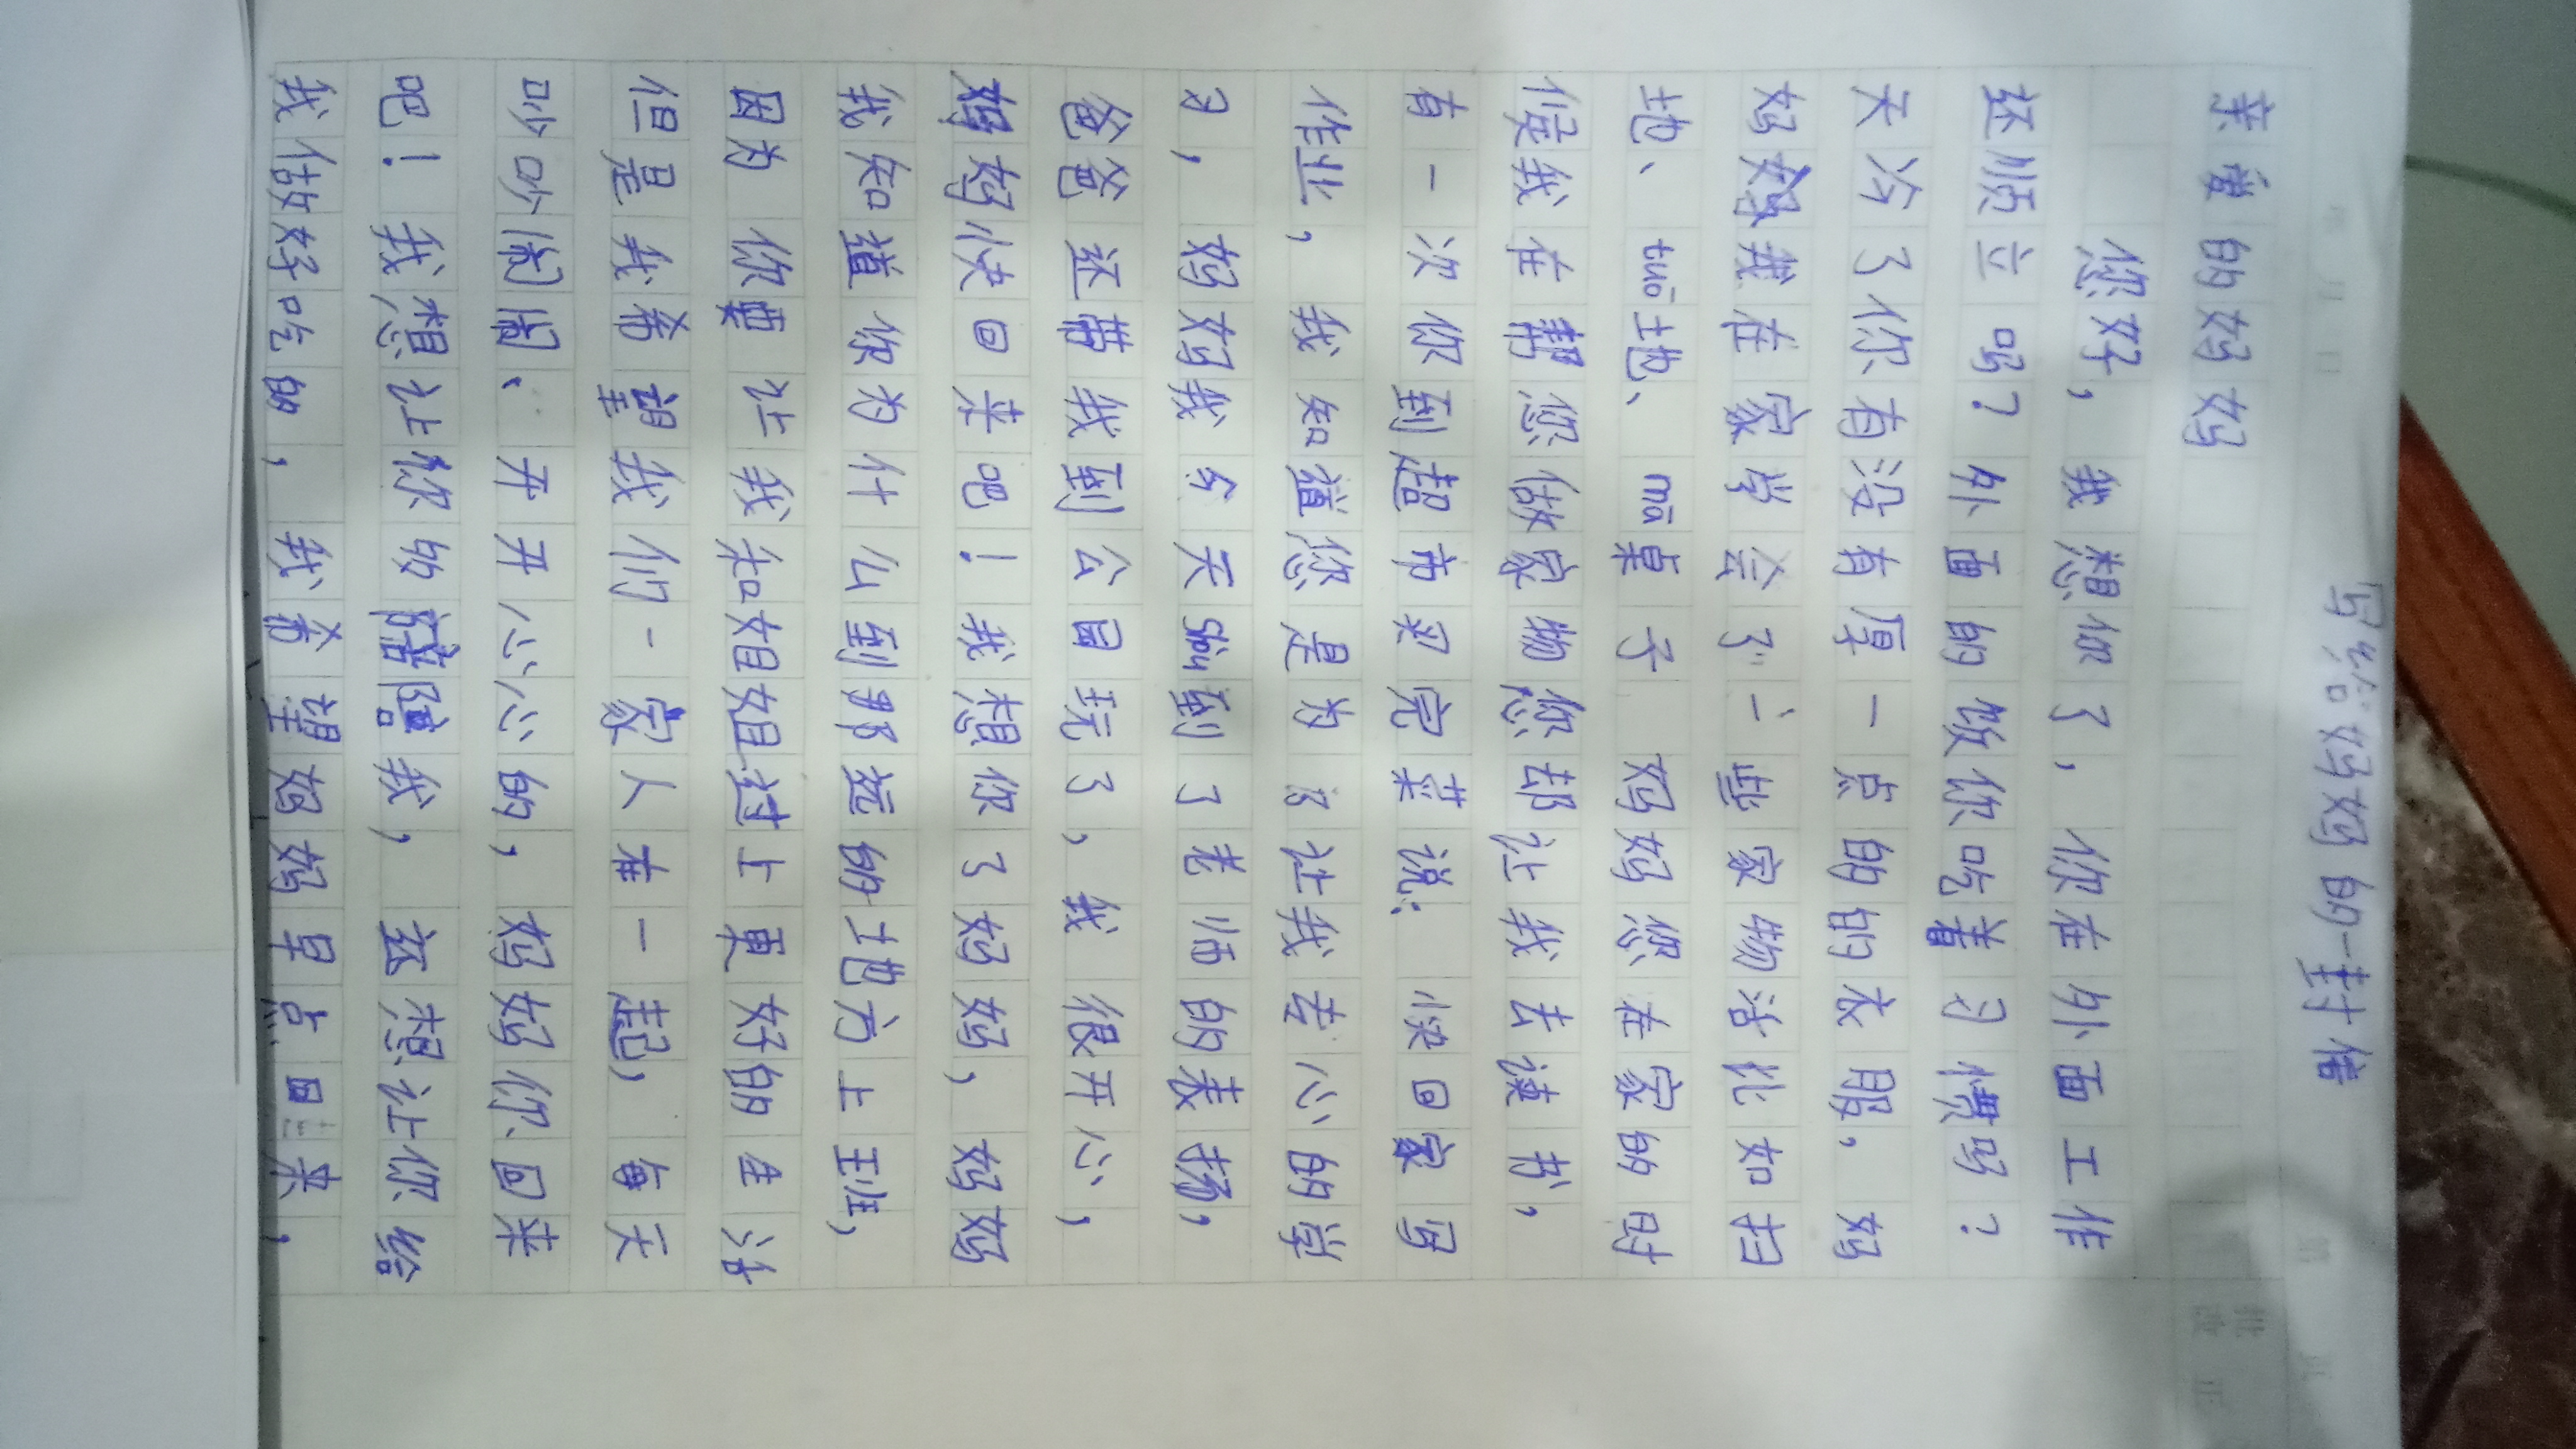 写给妈妈的一封信
亲爱的妈妈
您好，我想你了，你在外面工作
还顺立吗？外面的饭你吃着习惯吗？
天冷了你有没有厚一点的的衣服，妈
妈我在家学会了一些家物活比如扫
地、tuō地、mā桌子 妈妈您在家的时
候我在帮您做家物您却让我去读书，
有一次你到超市买完菜说：快回家写
作业，我知道您是为了让我专心的学
习，妈妈我今天shōu到了老师的表扬，
爸爸还带我到公园玩了，我很开心，
妈妈快回来吧！我想你了妈妈，妈妈
我知道你为什么到那远的地方上班，
因为你要让我和姐姐过上更好的生活
但是我希望我们一家人在一起，每天
吵吵闹闹、开开心心的，妈妈你回来
吧！我想让你多陪陪我，还想让你给
我做好吃的，我希望妈妈早点回来，